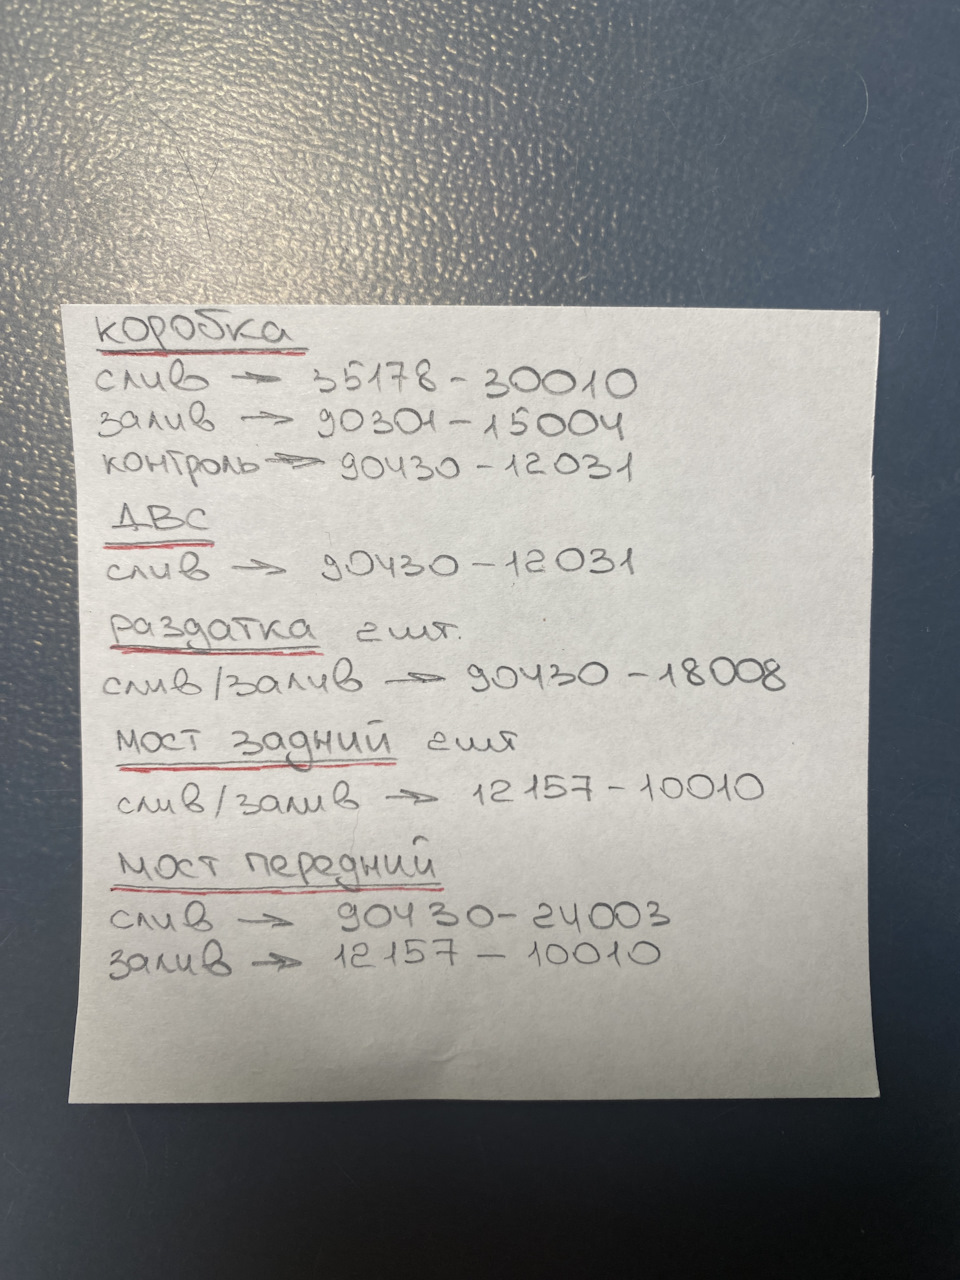 коробка
слив → 35178-30010
залив → 90301-15004
контроль → 90430-12031
ДВС
слив → 90430-12031
раздатка 2 шт.
слив/залив → 90430-18008
мост задний 2 шт
слив/залив → 12157-10010
мост передний
слив → 90430-24003
залив → 12157-10010